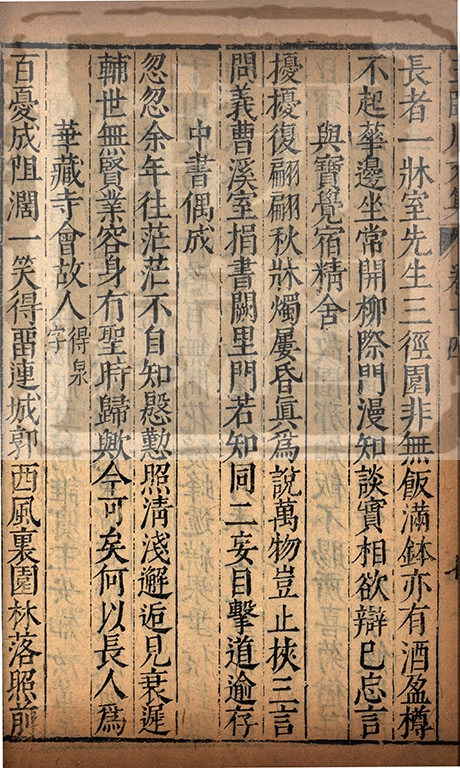 長者一牀室先生三徑園非無飯滿鉢亦有酒盈樽
不起華邊坐常開柳際門漫知談實相欲辯已忘言
與寶覺宿精舍
擾擾復翩翩秋牀燭屢昏眞爲說萬物豈止挾三言
問義曹溪室捐書闕里門若知同二妄目擊道逾存
中書偶成
忽忽余年往茫茫不自知慇懃照清淺邂逅見衰遲
輔世無賢業容身有聖時歸歟今可矣何以長人爲
華藏寺會故人得泉字
百憂成阻濶一笑得畱連城郭西風裏園林落照前